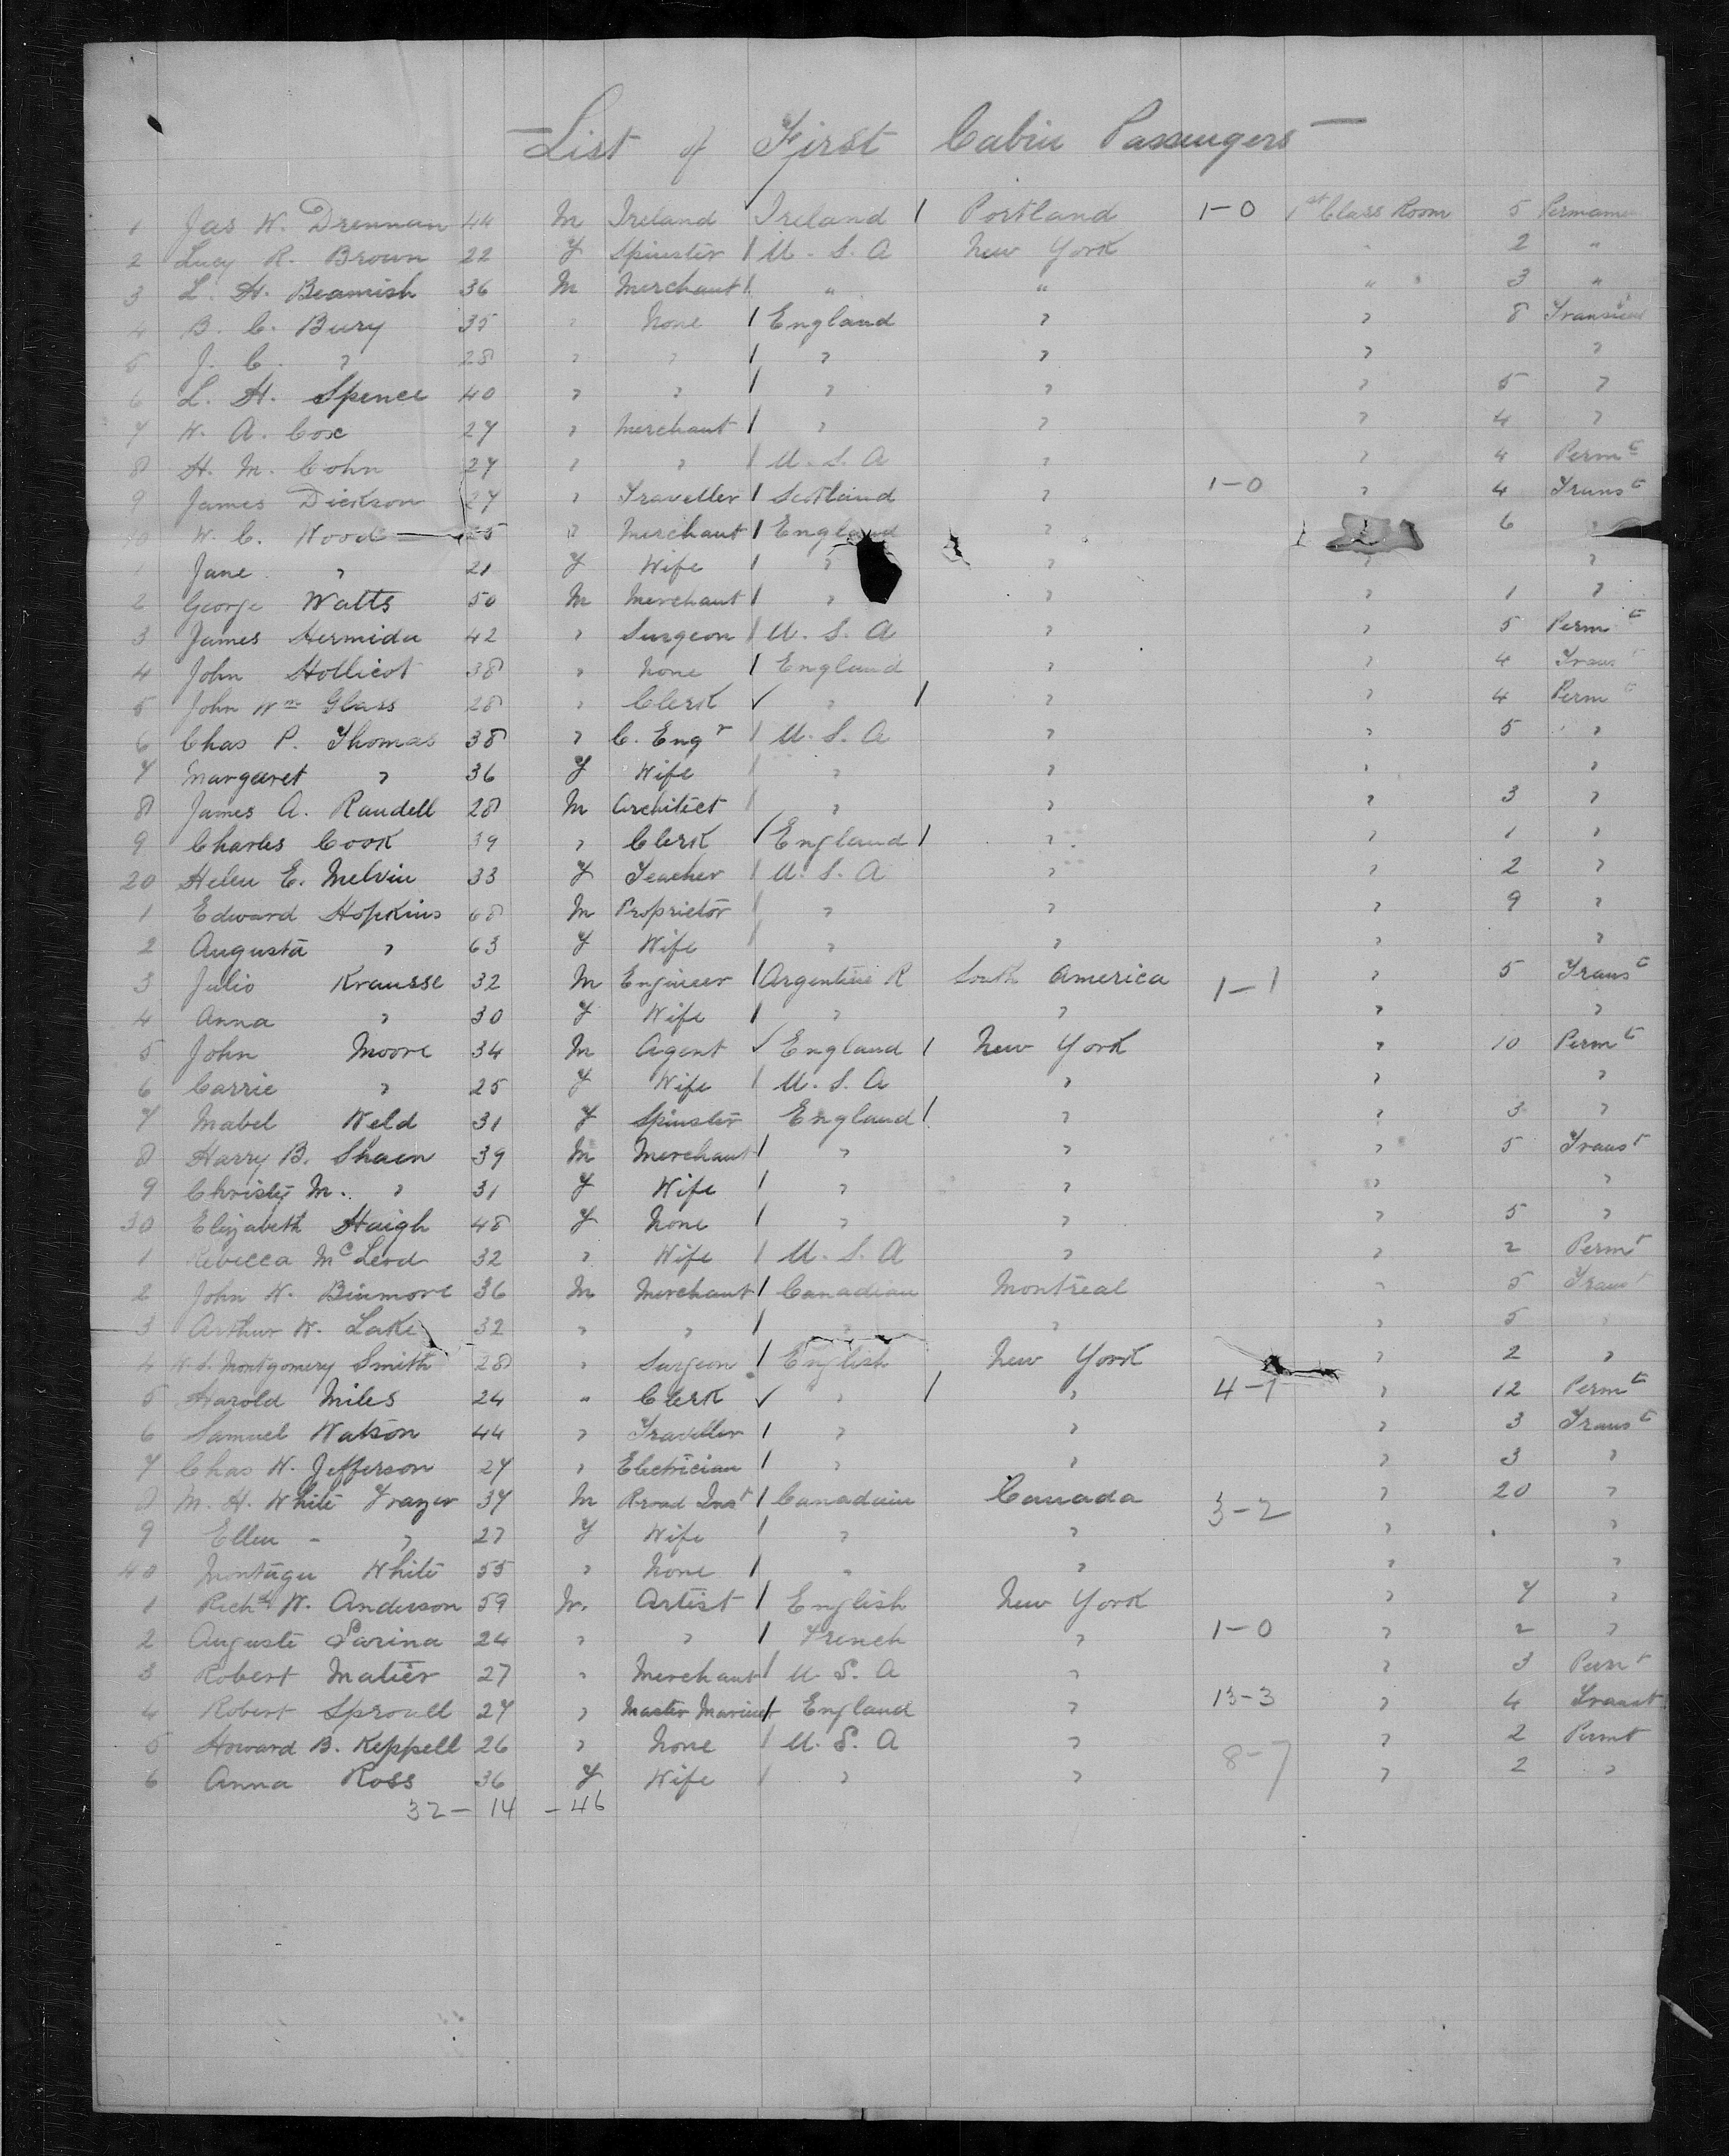 — List of First Cabin Passengers —
1 Jas W. Drennan 44 M Ireland Ireland / Portland 1-0 1st Class Room 5 Permanen
2 Lucy R. Brown 22 F Spinster / U. S. A New York " 2 "
3 L. H. Beamish 36 M Merchant / " " " 3 "
4 B. C. Bury 35 " None / England " " 8 Transient
5 J. C. " 28 " " / " " " "
6 L. H. Spence 40 " " / " " " 5 "
7 W. A. Cox 27 " Merchant / " " " 4 "
8 H. M. Cohn 27 " " / U. S. A " " 4 Permt
9 James Dickson 27 " Traveller / Scotland " 1-0 " 4 Transt
10 W. C. Wood 25 " Merchant / England " 6 "
1 Jane " 21 F Wife / " " " "
2 George Watts 50 M Merchant / " " " 1 "
3 James Hermida 42 " Surgeon / U. S. A " " 5 Permt
4 John Hollicot 38 " None / England " " 4 Transt
5 John Wm Glass 28 " Clerk ✓ " / " " 4 Permt
6 Chas P. Thomas 38 " C. Engr / U. S. A " " 5 "
7 Margaret " 36 F Wife / " " " "
8 James A. Randell 28 M Architect / " " " 3 "
9 Charles Cook 39 " Clerk ✓ England / " " 1 "
20 Helen E. Melvin 33 F Teacher / U. S. A " " 2 "
1 Edward Hopkins 68 M Proprietor / " " " 9 "
2 Augusta " 63 F Wife / " " " "
3 Julio Krausse 32 M Engineer / Argentine R South America 1-1 " 5 Transt
4 Anna " 30 F Wife / " " " "
5 John Moore 34 M Agent ✓ England / New York " 10 Permt
6 Carrie " 25 F Wife / U. S. A " " "
7 Mabel Weld 31 F Spinster England / " " 3 "
8 Harry B. Shaen 39 M Merchant / " " " 5 Transt
9 Christy M. " 31 F Wife / " " " "
30 Elizabeth Haigh 48 F None / " " " 5 "
1 Rebecca McLeod 32 " Wife / U. S. A " " 2 Permt
2 John W. Binmore 36 M Merchant / Canadian Montreal " 5 Transt
3 Arthur W. Lake 32 " " / " " " 5 "
4 W. S. Montgomery Smith 28 " Surgeon / English New York " 2 "
5 Harold Miles 24 " Clerk ✓ " / " 4-1 " 12 Permt
6 Samuel Watson 44 " Traveller / " " " 3 Transt
7 Chas W. Jefferson 27 " Electrician / " " " 3 "
8 M. H. White Frazer 37 M R-road Inst / Canadain Canada 3-2 " 20 "
9 Ellen - " 27 F Wife / " " " "
40 Montagu White 55 " None / " " " "
1 Richd W. Anderson 59 M. Artist / English New York " 7 "
2 Auguste Sarina 24 " " / French " 1-0 " 2 "
3 Robert Matier 27 " Merchant / U. S. A " " 3 Permt
4 Robert Sproull 27 " Master Mariner / England " 13-3 " 4 Transt
5 Howard B. Keppell 26 " None / U. S. A " " 2 Permt
6 Anna Ross 36 F Wife / " " 8-7 " 2 "
32 - 14 - 46